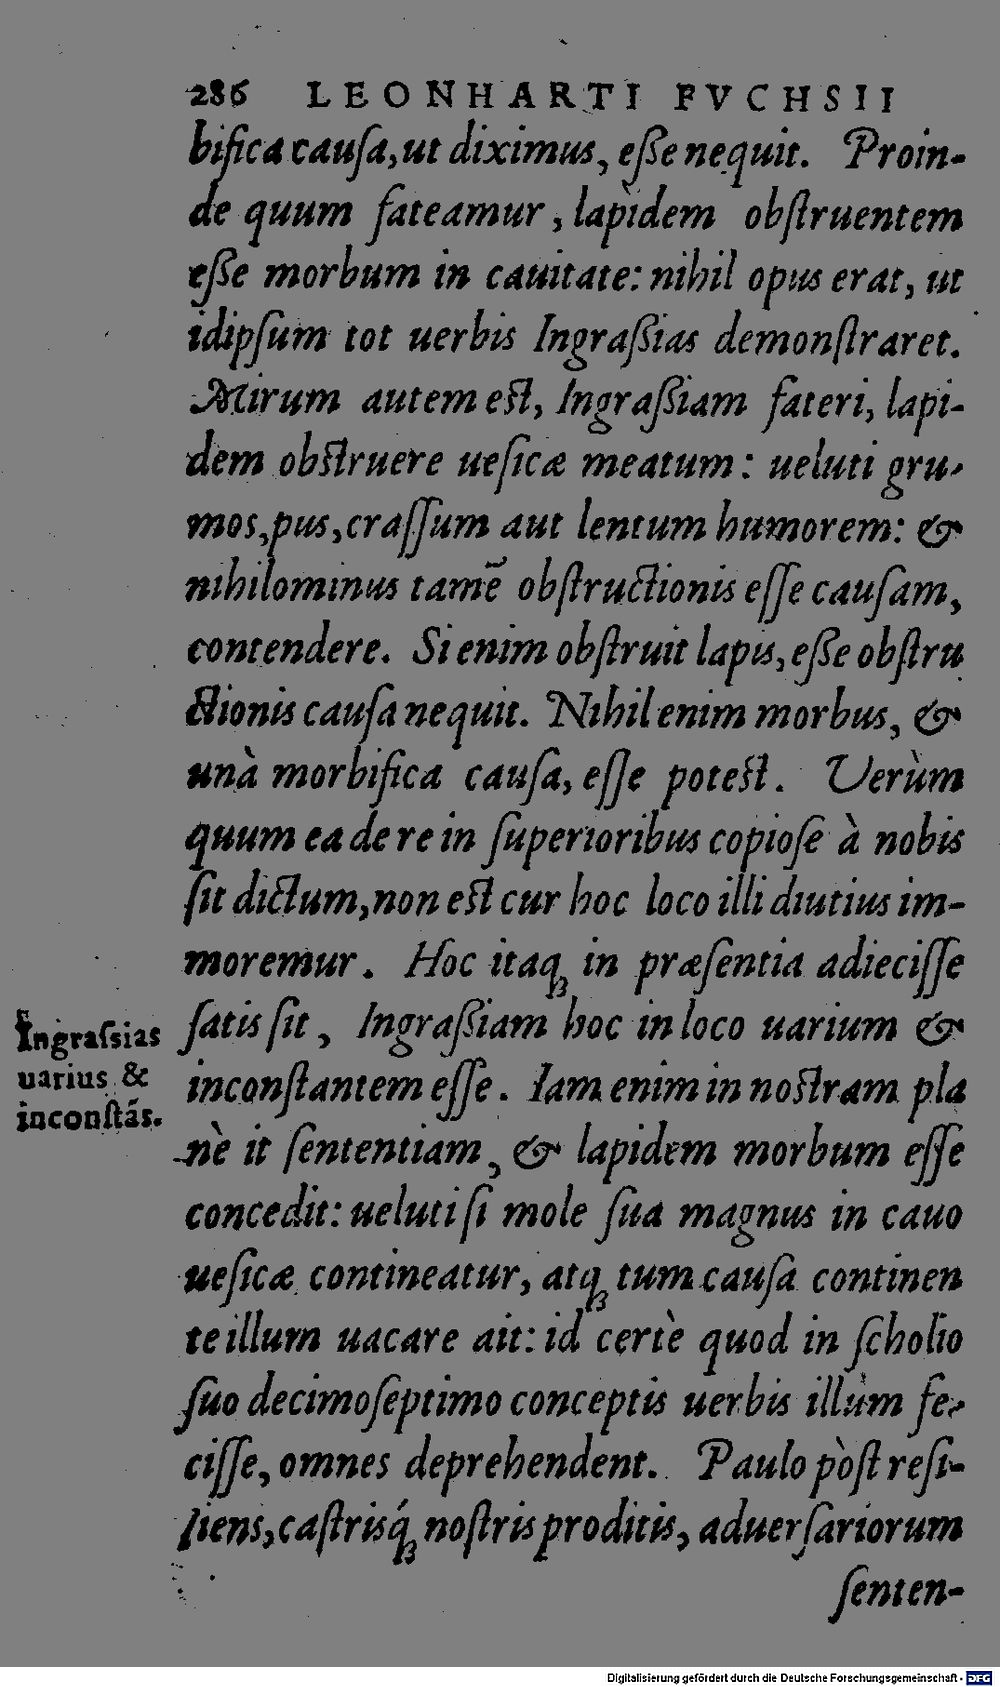 286 LEONHARTI FVCHSII
bifica cauſa, ut diximus, eſſe nequit. Proin-
de quum fateamur, lapidem obſtruentem
eſſe morbum in cauitate: nihil opus erat, ut
idipſum tot uerbis Ingraſsias demonſtraret.
Mirum autem eſt, Ingraſsiam fateri, lapi-
dem obſtruere ueſicæ meatum: ueluti gru-
mos, pus, craſſum aut lentum humorem: &
nihilominus tamē obſtructionis eſſe cauſam,
contendere. Si enim obſtruit lapis, eſſe obſtru
ctionis cauſa nequit. Nihil enim morbus, &
unà morbifica cauſa, eſſe poteſt. Uerùm
quum ea de re in ſuperioribus copioſe à nobis
ſit dictum, non eſt cur hoc loco illi diutius im-
moremur. Hoc itaqꝫ in præſentia adieciſſe
ſatis ſit, Ingraſsiam hoc in loco uarium &
inconſtantem eſſe. Iam enim in noſtram pla
nè it ſententiam, & lapidem morbum eſſe
concedit: ueluti ſi mole ſua magnus in cauo
ueſicæ contineatur, atqꝫ tum cauſa continen
te illum uacare ait: id certè quod in ſcholio
ſuo decimoſeptimo conceptis uerbis illùm fe-
ciſſe, omnes deprehendent. Paulo pòſt reſi-
liens, caſtrisq́ꝫ noſtris proditis, aduerſariorum
ſenten-
Ingraſsias
uarius &
inconſtás.
Digitalisierung gefördert durch die Deutsche Forschungsgemeinschaft - DFG